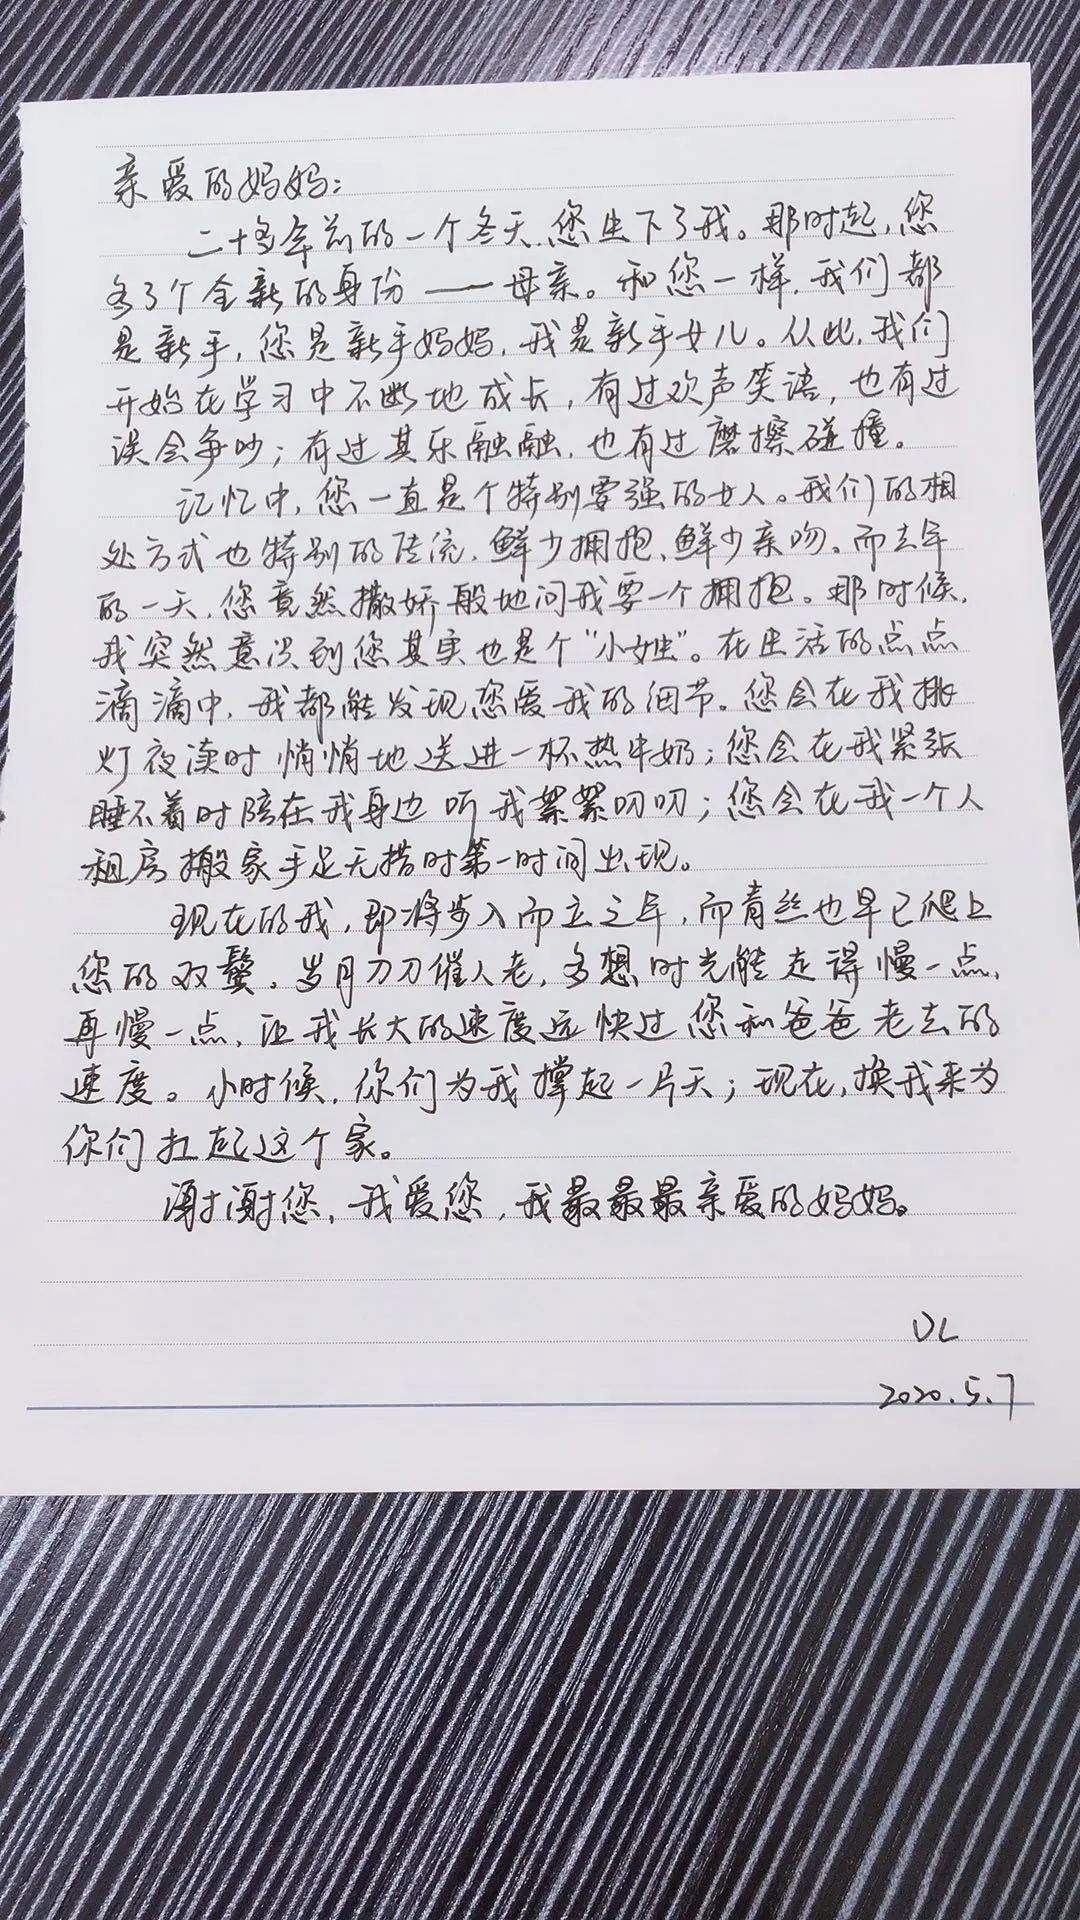 亲爱的妈妈:
二十多年前的一个冬天,您生下了我。那时起,您
多了个全新的身份——母亲。和您一样,我们都
是新手,您是新手妈妈,我是新手女儿。从此,我们
开始在学习中不断地成长,有过欢声笑语,也有过
误会争吵;有过其乐融融,也有过磨擦碰撞。
记忆中,您一直是个特别要强的女人。我们的相
处方式也特别的传统,鲜少拥抱、鲜少亲吻。而去年
的一天,您竟然撒娇般地问我要一个拥抱。那时候,
我突然意识到您其实也是个“小女生”。在生活的点点
滴滴中,我都能发现您爱我的细节。您会在我挑
灯夜读时悄悄地送进一杯热牛奶;您会在我紧张
睡不着时陪在我身边听我絮絮叨叨;您会在我一个人
租房搬家手足无措时第一时间出现。
现在的我,即将步入而立之年,而青丝也早已爬上
您的双鬓。岁月刀刀催人老,多想时光能走得慢一点,
再慢一点,让我长大的速度远快过您和爸爸老去的
速度。小时候,你们为我撑起一片天;现在,换我来为
你们扛起这个家。
谢谢您,我爱您,我最最最亲爱的妈妈。
2020.5.7